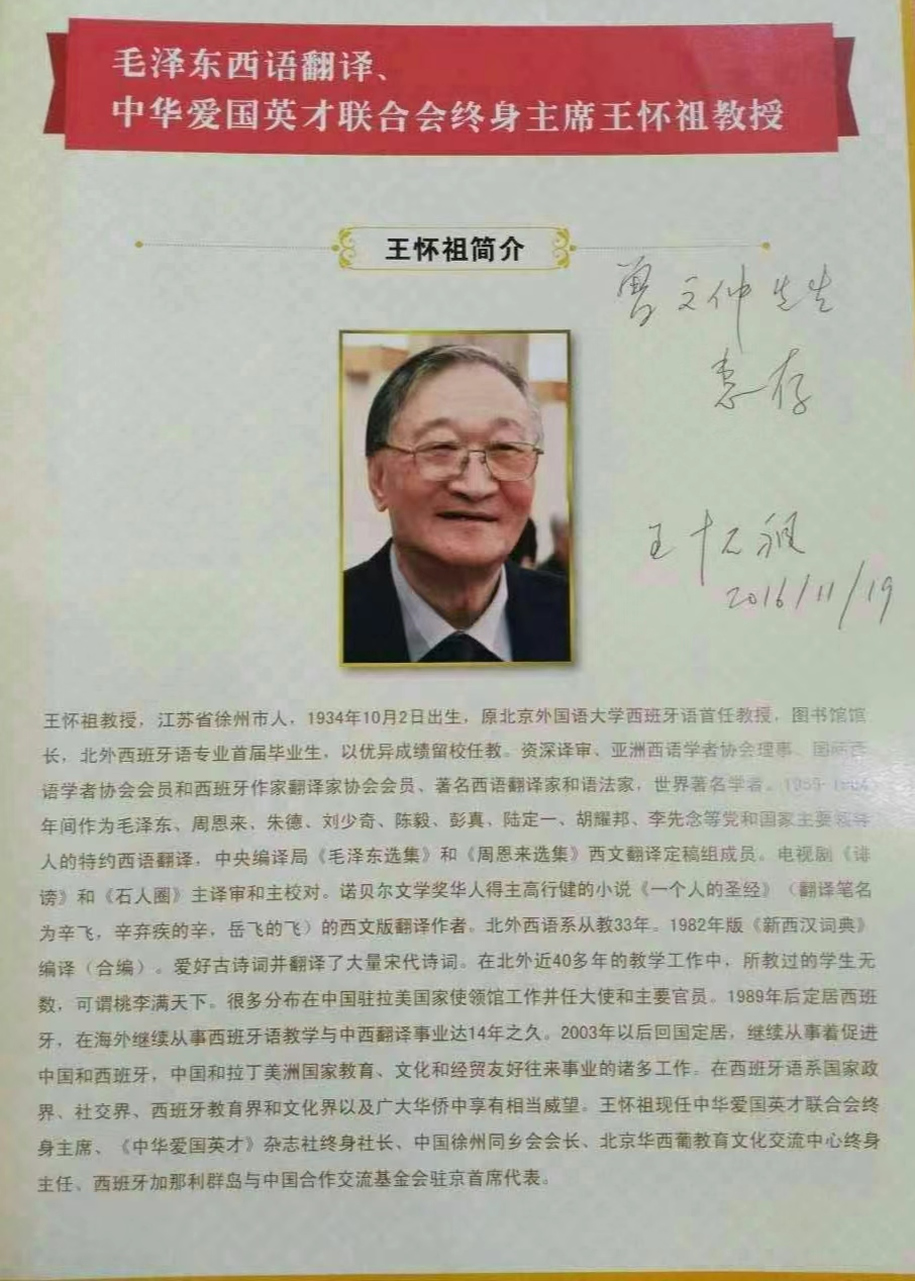 毛泽东西语翻译、
中华爱国英才联合会终身主席王怀祖教授
王怀祖简介
曾文仲先生
惠存
王怀祖
2016/11/19
王怀祖教授，江苏省徐州市人，1934年10月2日出生，原北京外国语大学西班牙语首任教授，图书馆馆
长，北外西班牙语专业首届毕业生，以优异成绩留校任教。资深译审、亚洲西语学者协会理事、国际西
语学者协会会员和西班牙作家翻译家协会会员、著名西语翻译家和语法家，世界著名学者。
年间作为毛泽东、周恩来、朱德、刘少奇、陈毅、彭真、陆定一、胡耀邦、李先念等党和国家主要领导
人的特约西语翻译，中央编译局《毛泽东选集》和《周恩来选集》西文翻译定稿组成员。电视剧《诽
谤》和《石人圈》主译审和主校对。诺贝尔文学奖华人得主高行健的小说《一个人的圣经》（翻译笔名
为辛飞，辛弃疾的辛，岳飞的飞）的西文版翻译作者。北外西语系从教33年。1982年版《新西汉词典》
编译（合编）。爱好古诗词并翻译了大量宋代诗词。在北外近40多年的教学工作中，所教过的学生无
数，可谓桃李满天下。很多分布在中国驻拉美国家使领馆工作并任大使和主要官员。1989年后定居西班
牙，在海外继续从事西班牙语教学与中西翻译事业达14年之久。2003年以后回国定居，继续从事着促进
中国和西班牙，中国和拉丁美洲国家教育、文化和经贸友好往来事业的诸多工作。在西班牙语系国家政
界、社交界、西班牙教育界和文化界以及广大华侨中享有相当威望。王怀祖现任中华爱国英才联合会终
身主席、《中华爱国英才》杂志社终身社长、中国徐州同乡会会长、北京华西葡教育文化交流中心终身
主任、西班牙加那利群岛与中国合作交流基金会驻京首席代表。